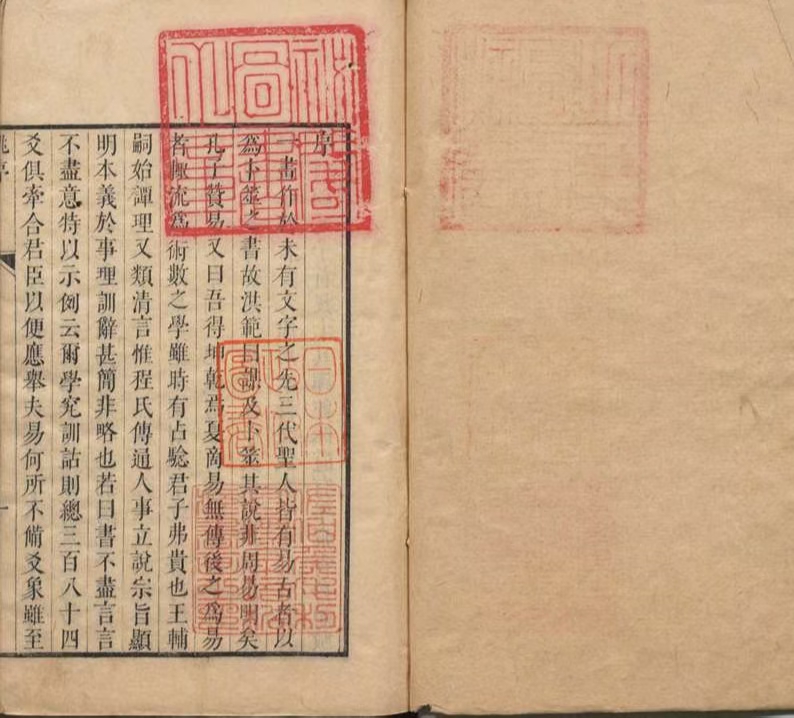 序
畫作於未有文字之先三代聖人皆有易古者以
爲卜筮之書故洪範曰謀及卜筮其說非周易明矣
孔子贊易又曰吾得坤乾焉夏商易無傳後之爲易
者極流爲術數之學雖時有占驗君子弗貴也王輔
嗣始譚理又類清言惟程氏傳通人事立說宗旨顯
明本義於事理訓辭甚簡非略也若曰書不盡言言
不盡意特以示例云爾學究訓詁則總三百八十四
爻俱牽合君臣以便應舉夫易何所不備爻象雖至
序
一